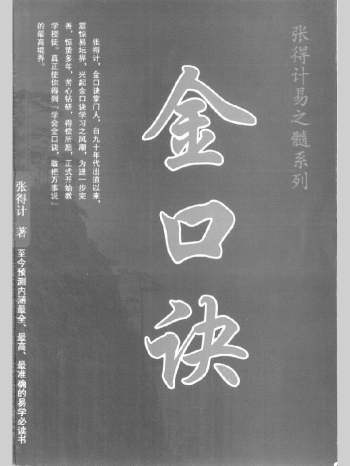 张得计易之髓系列
金口诀
张得计，金口诀掌门人，自九十年代出道以来，
震惊易坛界，兴起金口诀学习之风潮，为进一步完
善，惊蛰多年，苦心钻研，得偿所愿，正式开始教
学授徒。真正使你得到「学会金口诀，敢把万事说」
的最高境界。
张得计 著
至今预测内涵最全、最高、最准确的易学必读书